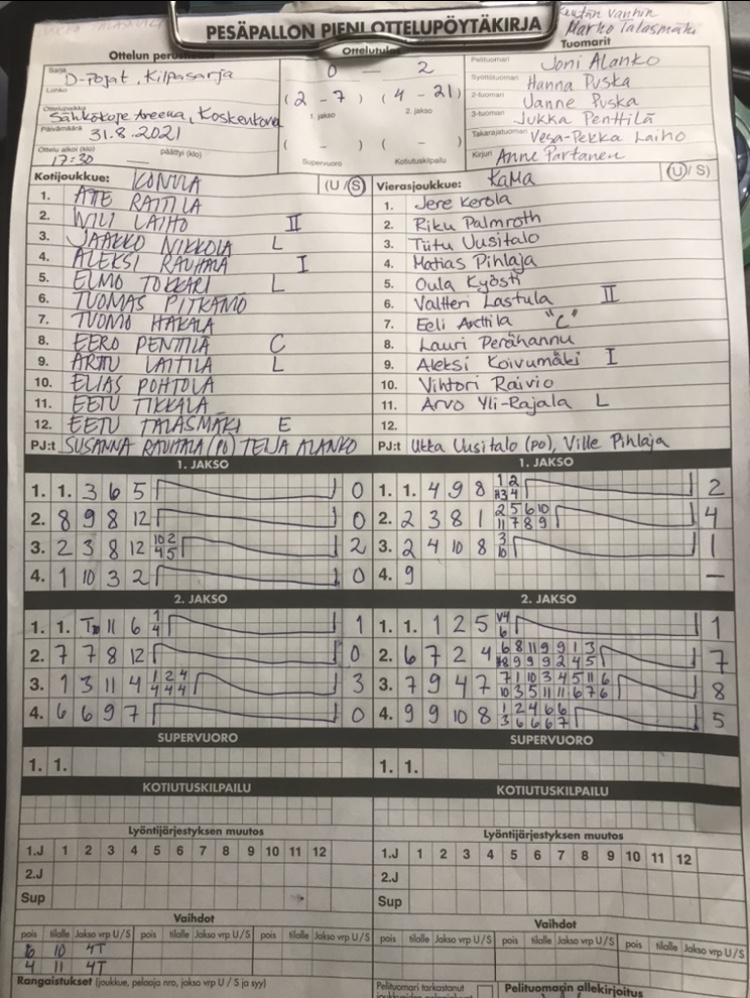 PESÄPALLON PIENI OTTELUPÖYTÄKIRJA
Marko Talasmäki
Ottelun
Ottelutulos
Tuomarit
Sarja
D-Pojat, Kilpasarja
Lohko
0 — 2
(2 - 7) (4 - 21)
1. jakso 2. jakso
( - ) ( - )
Supervuoro Kotiutuskilpailu
Ottelupaikka
Sähkökoje Areena, Koskenkorva
Päivämäärä
31.8.2021
Ottelu alkoi (klo) päättyi (klo)
17:30
Pelituomari Joni Alanko
Syöttötuomari Hanna Puska
2-tuomari Janne Puska
3-tuomari Jukka Penttilä
Takarajatuomari Vesa-Pekka Laiho
Kirjuri Anne Partanen
Kotijoukkue: (U/S)
1. ATE RATTILA
2. WILI LAIHO II
3. JAAKKO NIKKOLA L
4. ALEKSI RAUHALA I
5. ELMO TOKKARI L
6. TUOMAS PITKÄMÖ
7. TUOMO HAKALA
8. EERO PENTTILÄ C
9. ARTTU LAITILA L
10. ELIAS POHTOLA
11. EETU TIKKALA
12. EETU TALASMÄKI E
PJ:t SUSANNA RAUHALA (PO) TEIJA ALANKO
Vierasjoukkue: KaMa (U/S)
1. Jere Kerola
2. Riku Palmroth
3. Tiitu Uusitalo
4. Matias Pihlaja
5. Oula Kyösti
6. Valtteri Lastula II
7. Eeli Anttila "C"
8. Lauri Perähannu
9. Aleksi Koivumäki I
10. Vihtori Raivio
11. Arvo Yli-Rajala L
12.
PJ:t Ukka Uusitalo (po), Ville Pihlaja
1. JAKSO
1. 1. 3 6 5 0
2. 8 9 8 12 0
3. 2 3 8 12 10 2 4 5 2
4. 1 10 3 2 0
1. JAKSO
1. 1. 4 9 8 1 2 3 4 2
2. 2 3 8 1 2 5 6 10 11 7 8 9 4
3. 2 4 10 8 3 10 1
4. 9 —
2. JAKSO
1. 1. 11 6 1 4 1
2. 7 7 8 12 0
3. 1 3 11 4 1 2 4 4 4 4 3
4. 6 6 9 7 0
2. JAKSO
1. 1. 1 2 5 V4 6 1
2. 6 7 2 4 6 8 11 9 9 1 3 8 9 9 9 2 4 5 7
3. 7 9 4 7 7 1 10 3 4 5 11 6 10 3 5 11 11 6 7 6 8
4. 9 9 10 8 1 2 4 6 6 3 6 6 6 7 5
SUPERVUORO
1. 1.
SUPERVUORO
1. 1.
KOTIUTUSKILPAILU
KOTIUTUSKILPAILU
Lyöntijärjestyksen muutos
1.J 1 2 3 4 5 6 7 8 9 10 11 12
2.J
Sup
Lyöntijärjestyksen muutos
1.J 1 2 3 4 5 6 7 8 9 10 11 12
2.J
Sup
Vaihdot
pois tilalle Jakso vrp U/S pois tilalle Jakso vrp U/S pois tilalle Jakso vrp U/S
6 10 4T
4 11 4T
Vaihdot
pois tilalle Jakso vrp U/S pois tilalle Jakso vrp U/S pois tilalle Jakso vrp U/S
Rangaistukset (joukkue, pelaaja nro, jakso vrp U / S ja syy)
Pelituomari tarkastanut
Pelituomarin allekirjoitus